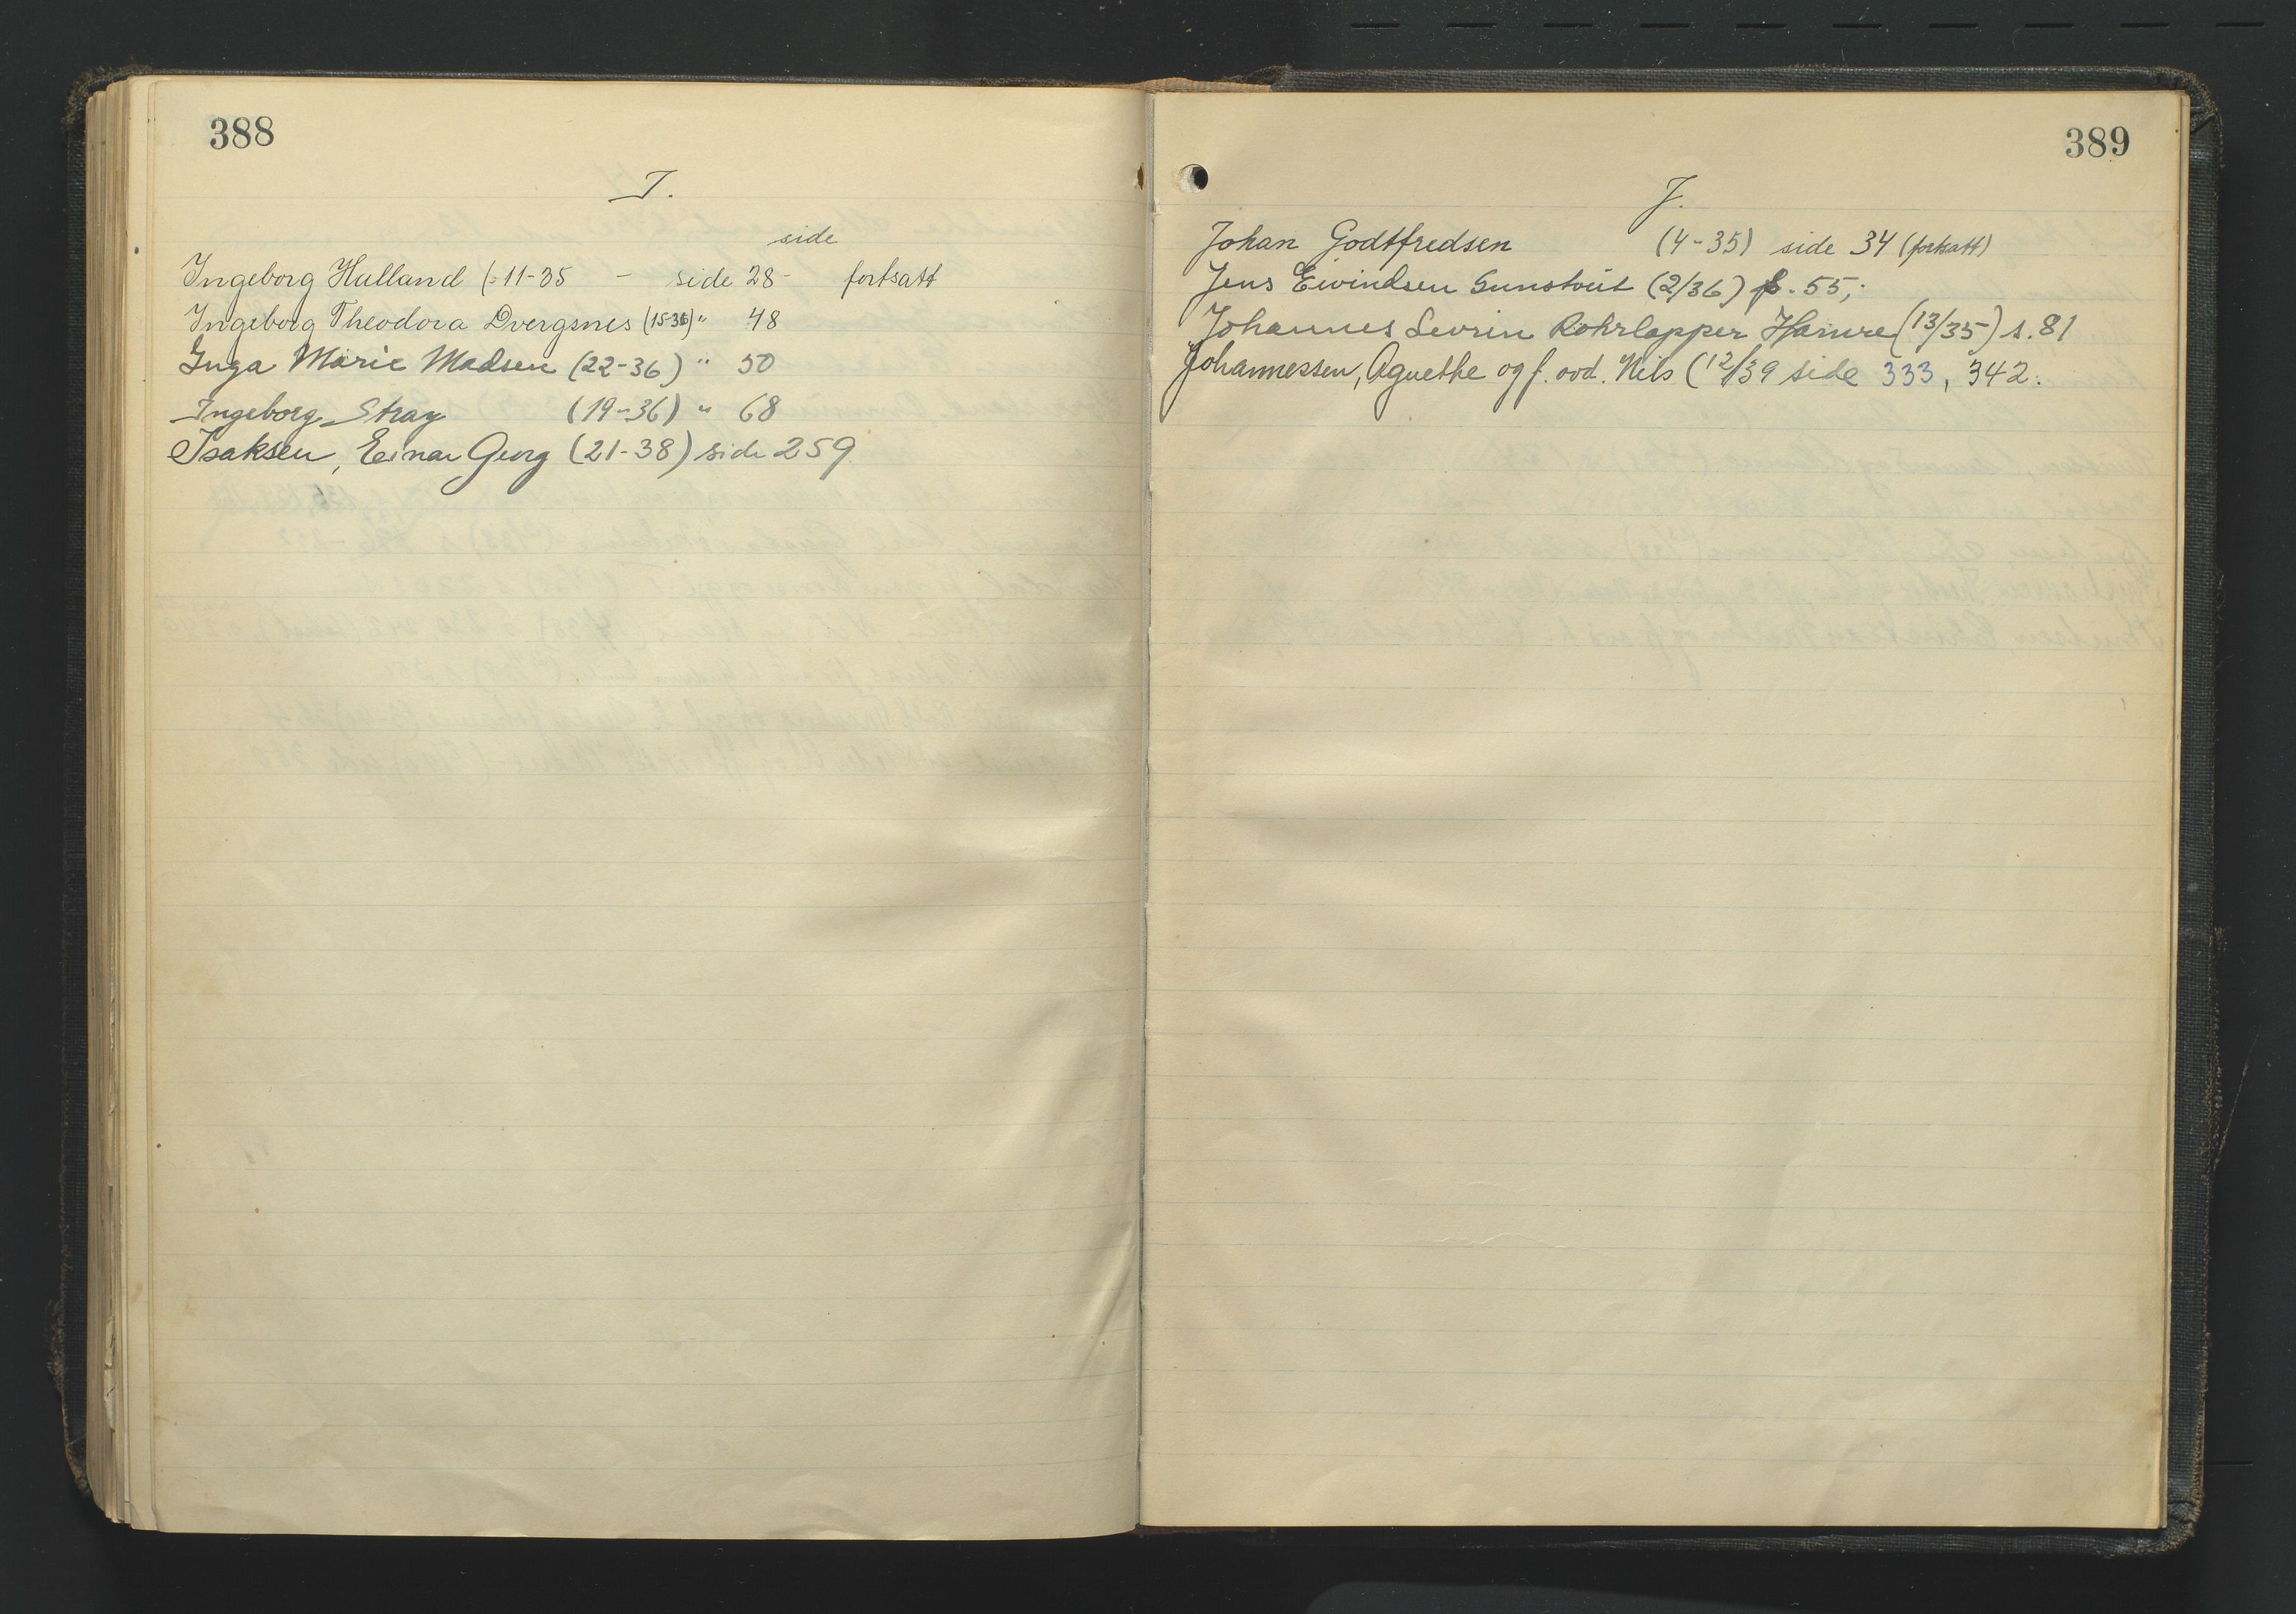 388
I.
side
Ingeborg Halland (-11-35 - side 28- fortsatt
Ingeborg Theodora Dvergsnes (15-36) " 48
Inga Marie Madsen (22-36) " 50
Ingeborg Stray (19-36) " 68
Isaksen, Einar Georg (21-38) side 259
389
J.
Johan Godtfredsen (4-35) side 34 (fortsatt)
Jens Eivindsen (2/36) s. 55;
Johannes Sevrin Rohrlapper Hamre (13/35) s. 81
Johannessen, Agnethe og f. avd. Nils (12/39 side 333, 342.